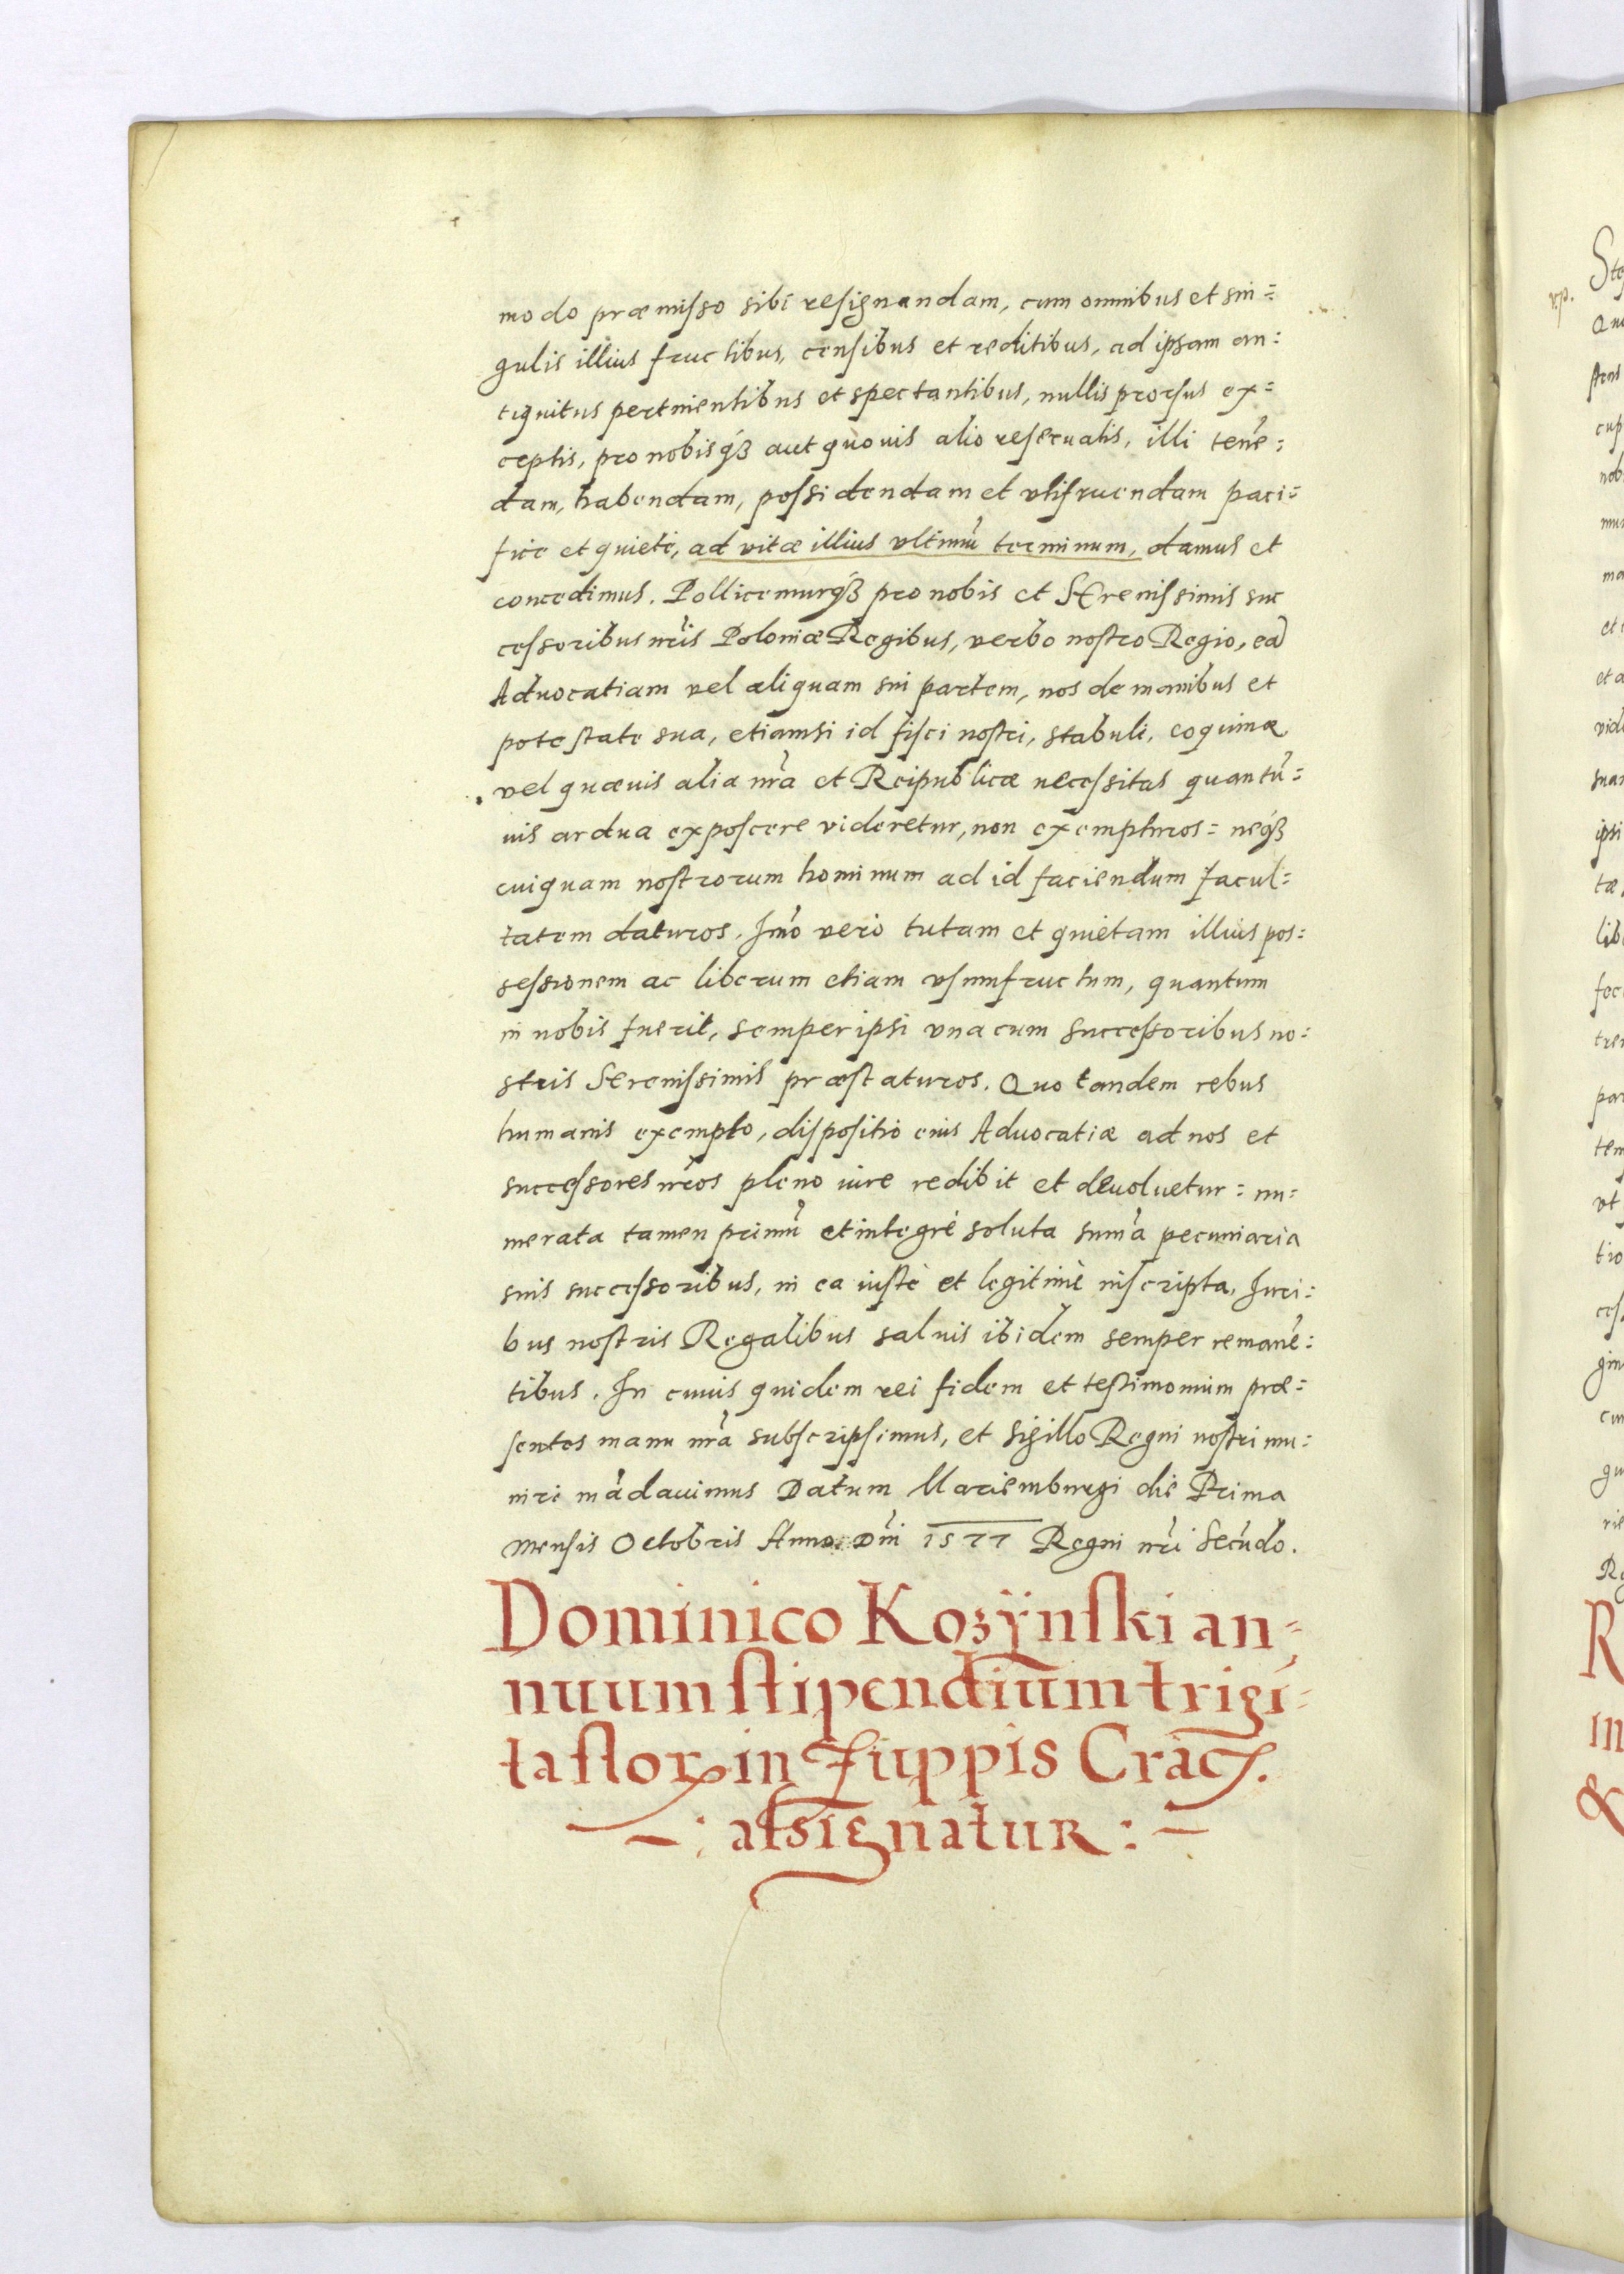 modo præmisso sibi resignandam, cum omnibus et sin=
gulis illius fructibus, censibus et reditibus, ad ipsam an:
tiquitus pertinentibus et spectantibus, nullis prorsus ex=
ceptis, pro nobisq́ꝫ aut quouis alio reseruatis, illi tenē:
dam, habendam, possidendam et vtifruendam paci=
fice et quiete, ad vitæ illius vltimū terminum, damus et
concedimus. Pollicemurq́ꝫ pro nobis et Serenissimis suc
cessoribus nr̄is Poloniæ Regibus, verbo nostro Regio, ead
Aduocatiam vel aliquam sui partem, nos de manibus et
potestate sua, etiamsi id fisci nostri, stabuli, coquinæ
vel quæuis alia nr̄a et Reipublicæ necessitas quantū=
uis ardua exposcere videretur, non exempturos= neq́ꝫ
cuiquam nostrorum hominum ad id faciendum facul=
tatem daturos. Imō vero tutam et quietam illius pos:
sessionem ac liberum etiam vsumfructum, quantum
in nobis fuerit, semper ipsi vna cum successoribus no:
stris Serenissimis præstaturos. Quo tandem rebus
humanis exempto, dispositio eius Aduocatiæ ad nos et
successores nr̄os pleno iure redibit et deuoluetur= nu=
merata tamen primū et integrè soluta sum̄a pecuniaria
suis successoribus, in ea iustè et legitimè inscripta. Juri:
bus nostris Regalibus saluis ibidem semper remanē:
tibus. In cuius quidem rei fidem et testimonium præ=
sentes manu nr̄a subscripsimus, et sigillo Regni nostri mu:
niri mādauimus Datum Mariemburgi die Prima
mensis Octobris Anno Dn̄i 1577 Regni nr̄i Secūdo.
Dominico Kozÿnski an=
nuum stipendium trigī=
ta floꝝ in Zuppis Crac̄.
—: assignatur: —